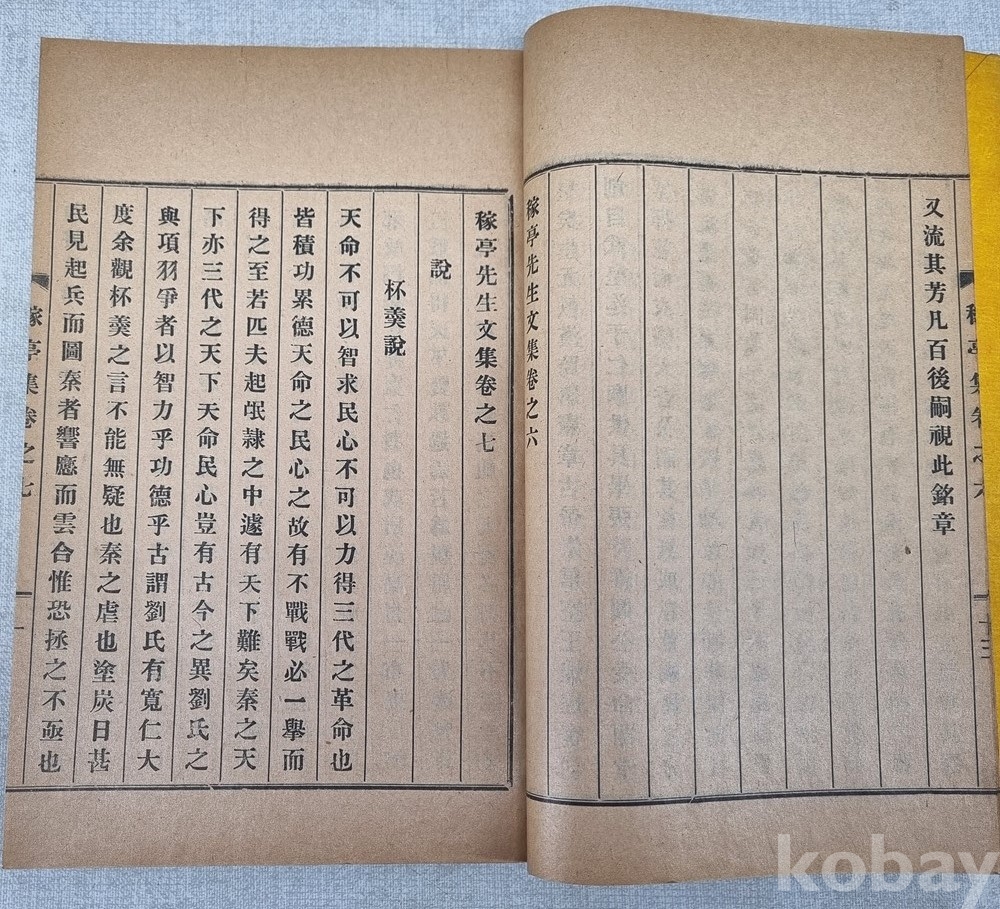 又流其芳凡百後嗣視此銘章
稼亭先生文集卷之六
稼亭先生文集卷之七
說
杯羹說
天命不可以智求民心不可以力得三代之革命也
皆積功累德天命之民心之故有不戰戰必一舉而
得之至若匹夫起氓隷之中遽有天下難矣秦之天
下亦三代之天下天命民心豈有古今之異劉氏之
與項羽爭者以智力乎功德乎古謂劉氏有寬仁大
度余觀杯羹之言不能無疑也秦之虐也塗炭日甚
民見起兵而圖秦者響應而雲合惟恐拯之不亟也
稼亭集卷之七
一
稼亭集卷之六
十三
kobay